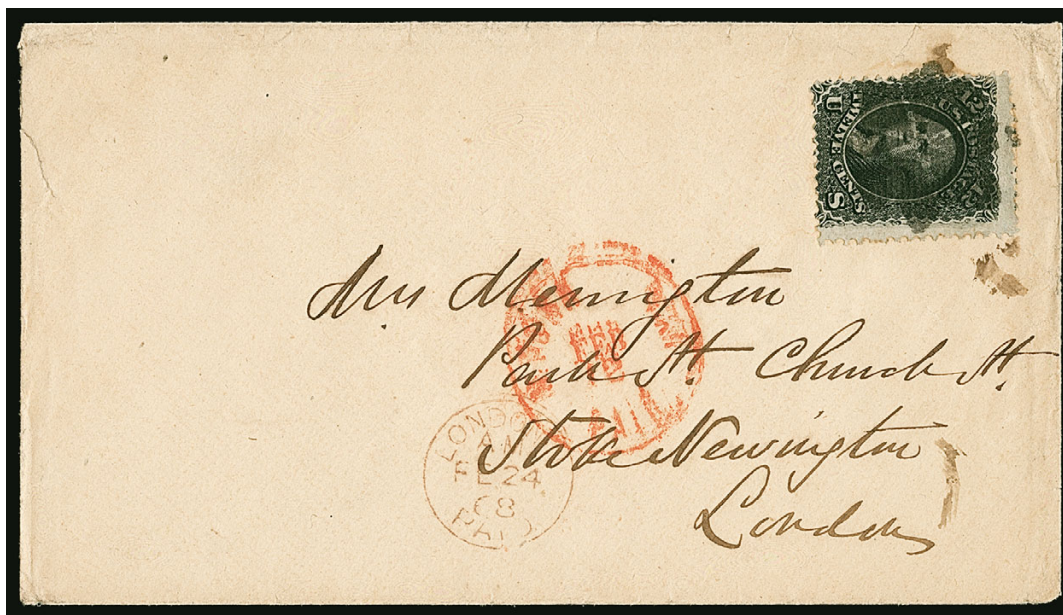 U S
TWELVE CENTS
Mrs Merrington
Park St. Church St.
Stoke Newington
London
FEB
PAID
LONDON
FE 24
68
PAID